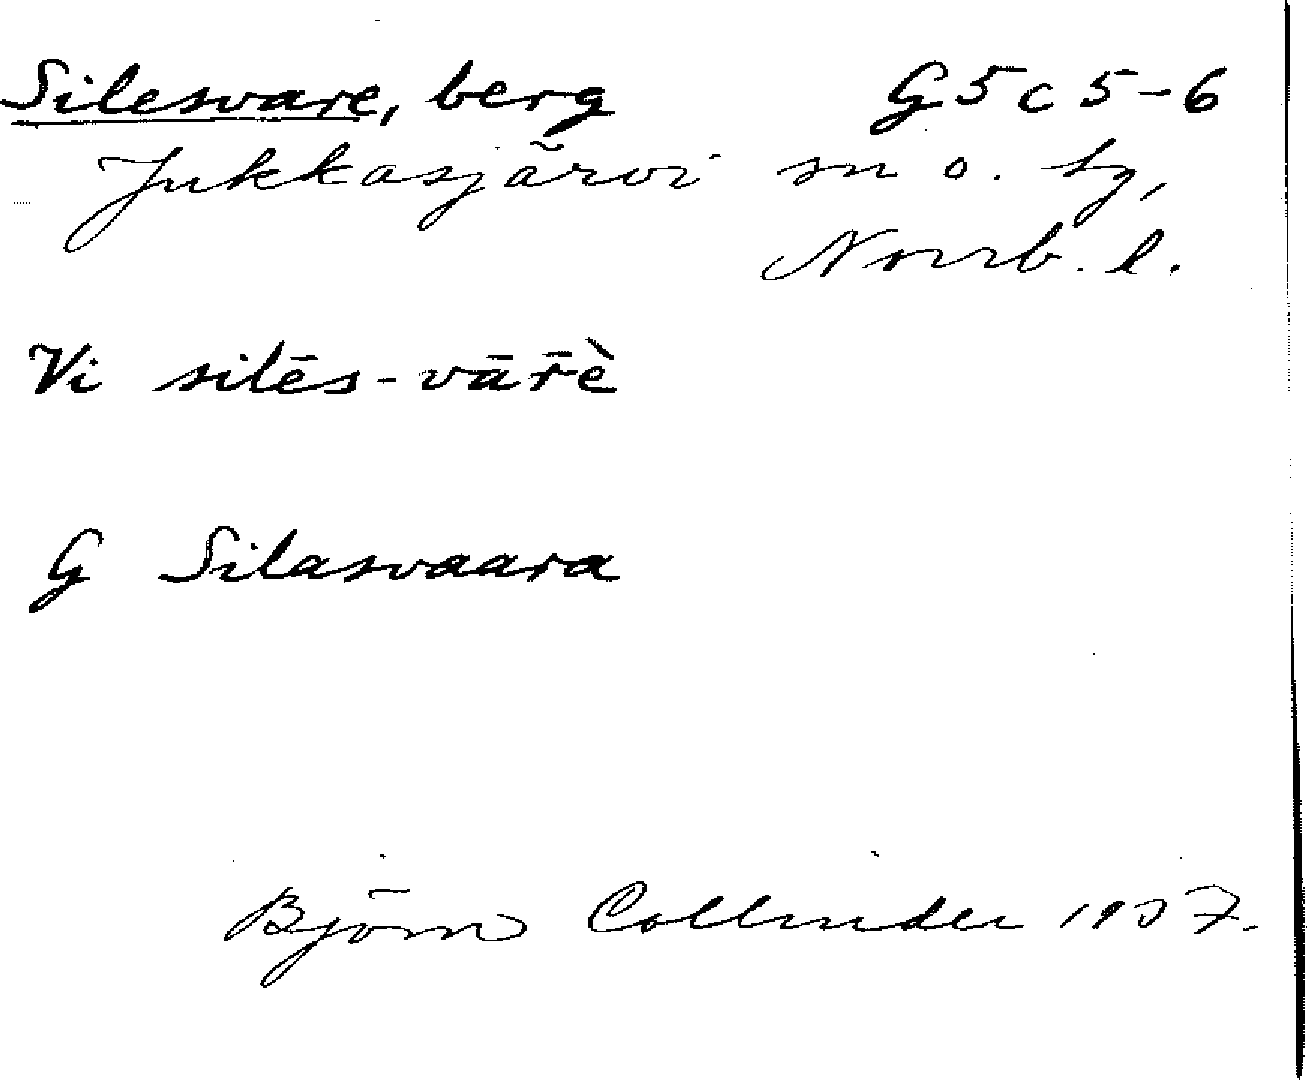 Silesvare, berg G5c5-6
Jukkasjärvi sn o. tg,
Norrb. l.
Vi silēs-vār̄è
G Silasvaara
Björn Collinder 1957.